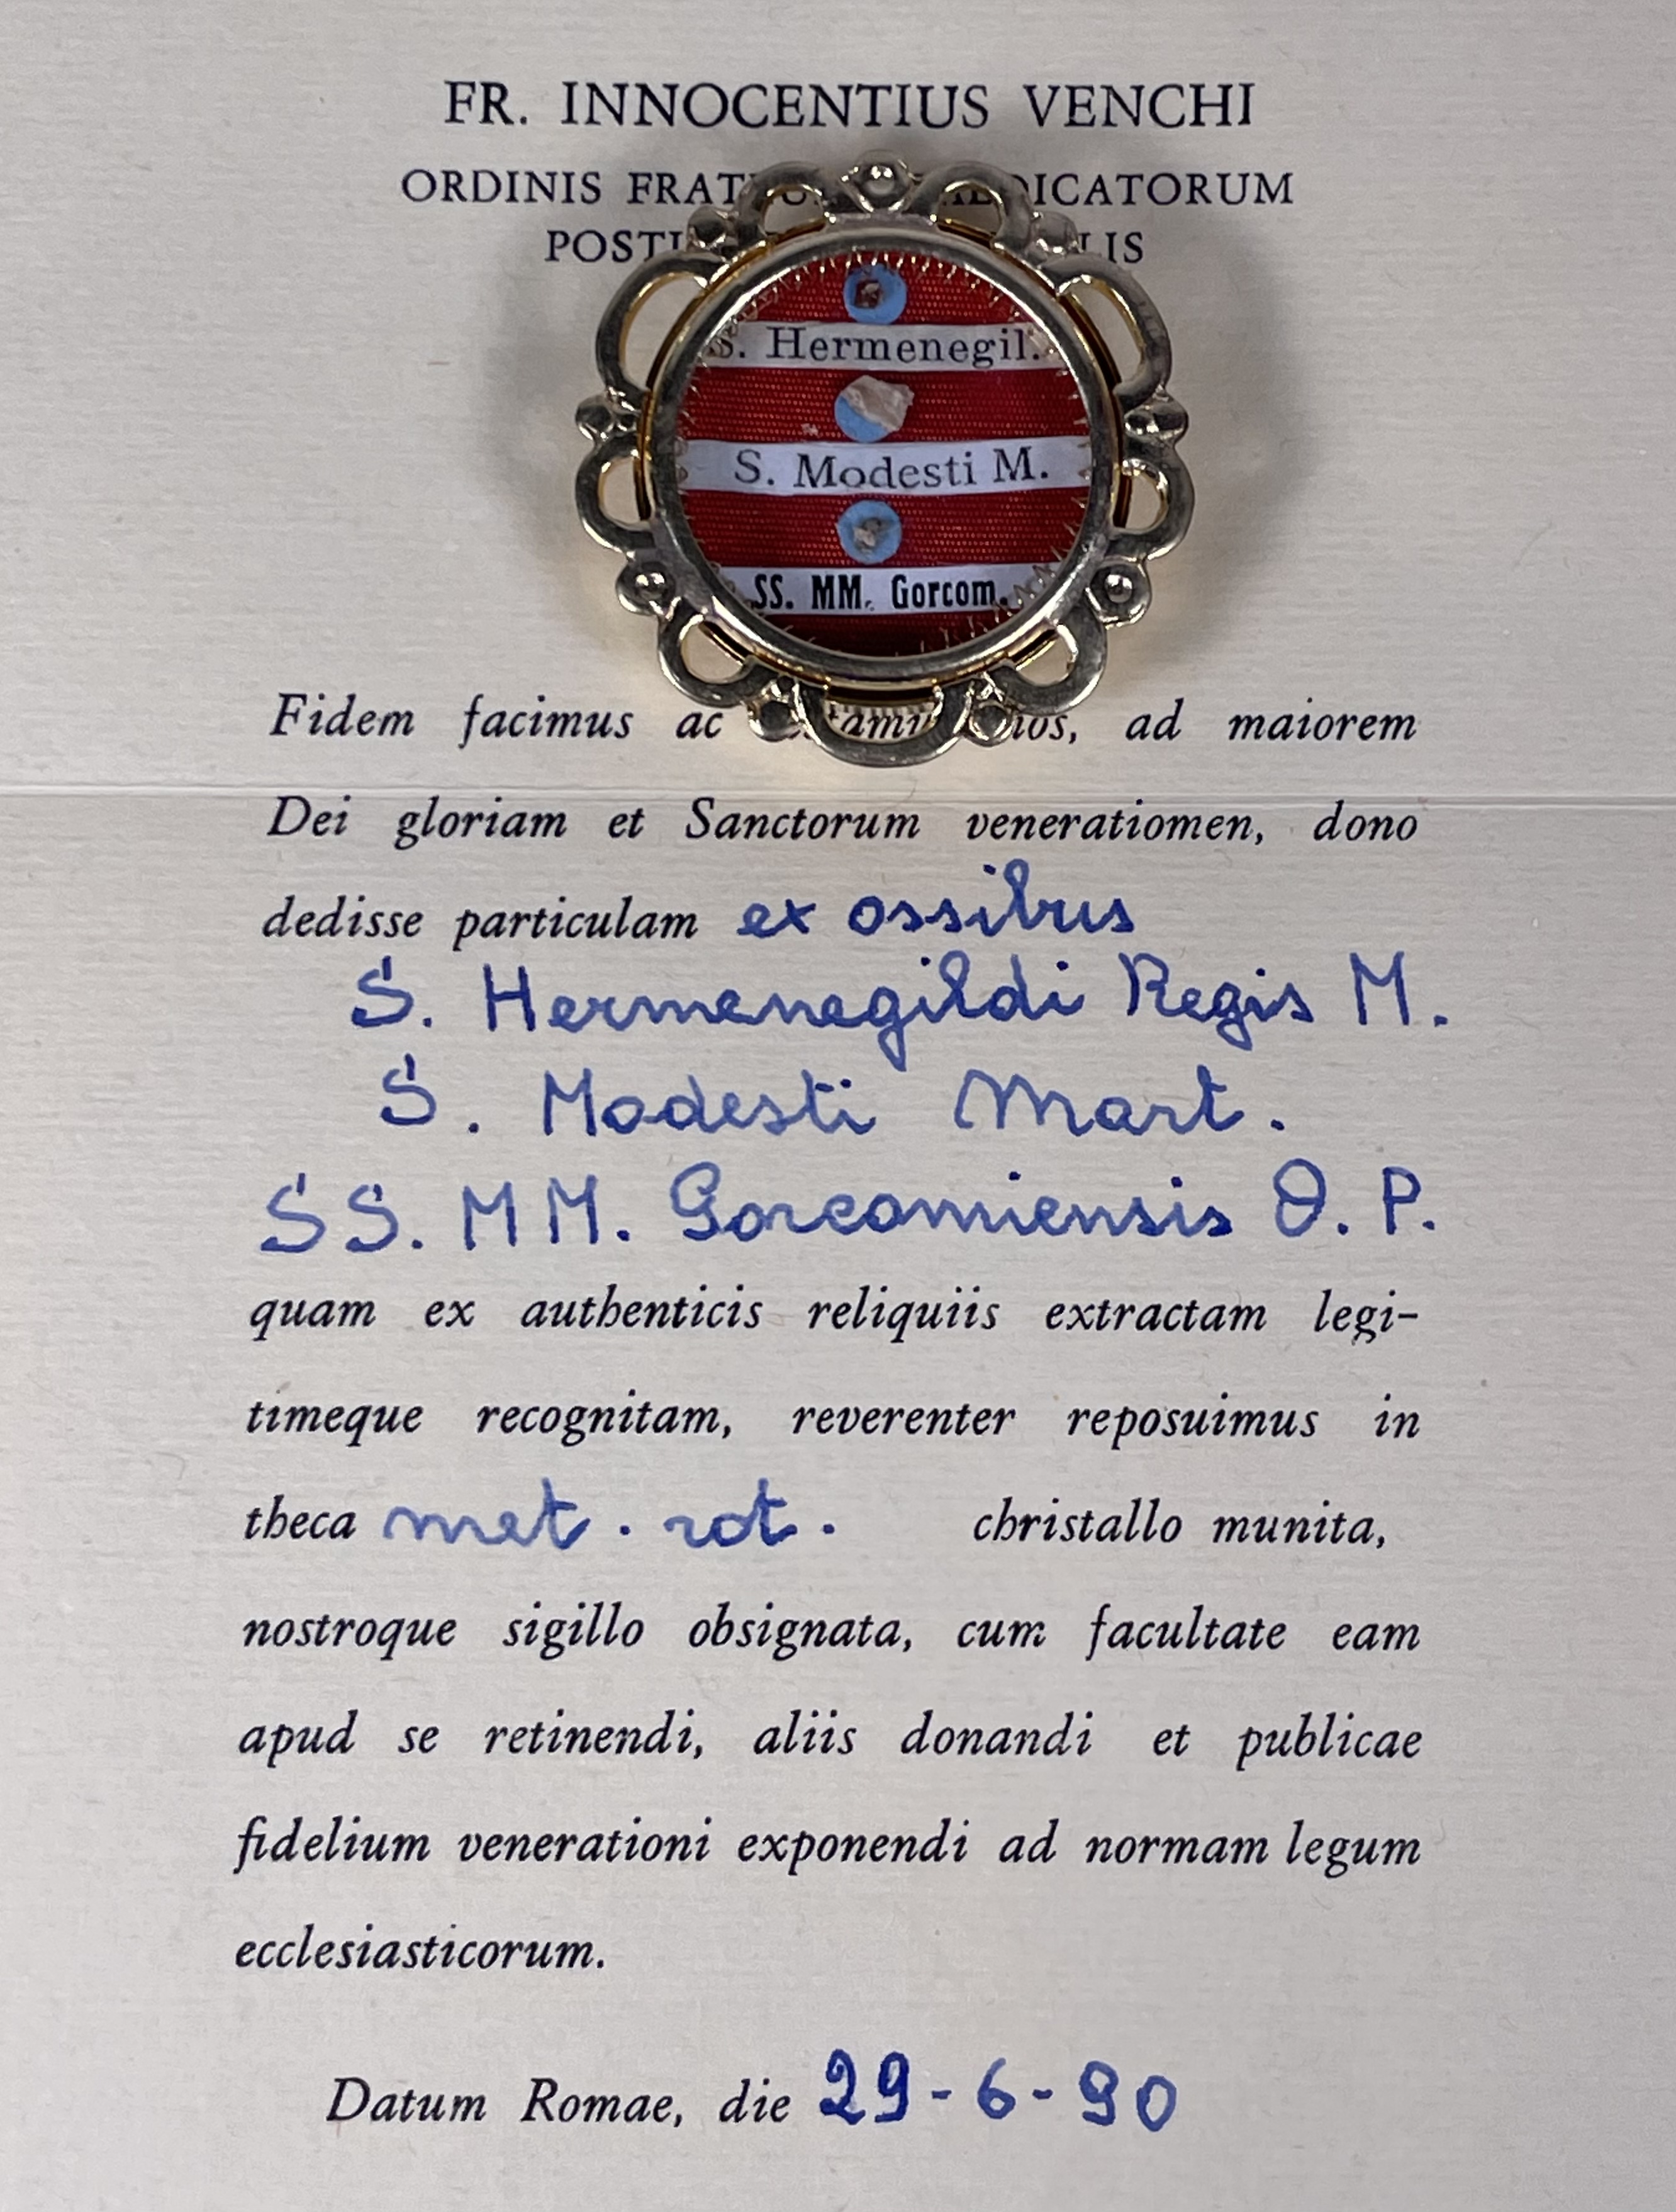 FR. INNOCENTIUS VENCHI
ORDINIS DICATORUM
S. Hermenegil.
S. Modesti M.
SS. MM. Gorcom.
Fidem facimus ac ad maiorem
Dei gloriam et Sanctorum veneratiomen, dono
dedisse particulam ex ossibus
S. Hermenegildi Regis M.
S. Modesti Mart.
SS. MM. Gorcomiensis O. P.
quam ex authenticis reliquiis extractam legi-
timeque recognitam, reverenter reposuimus in
theca met. rot. christallo munita,
nostroque sigillo obsignata, cum facultate eam
apud se retinendi, aliis donandi et publicae
fidelium venerationi exponendi ad normam legum
ecclesiasticorum.
Datum Romae, die 29-6-90